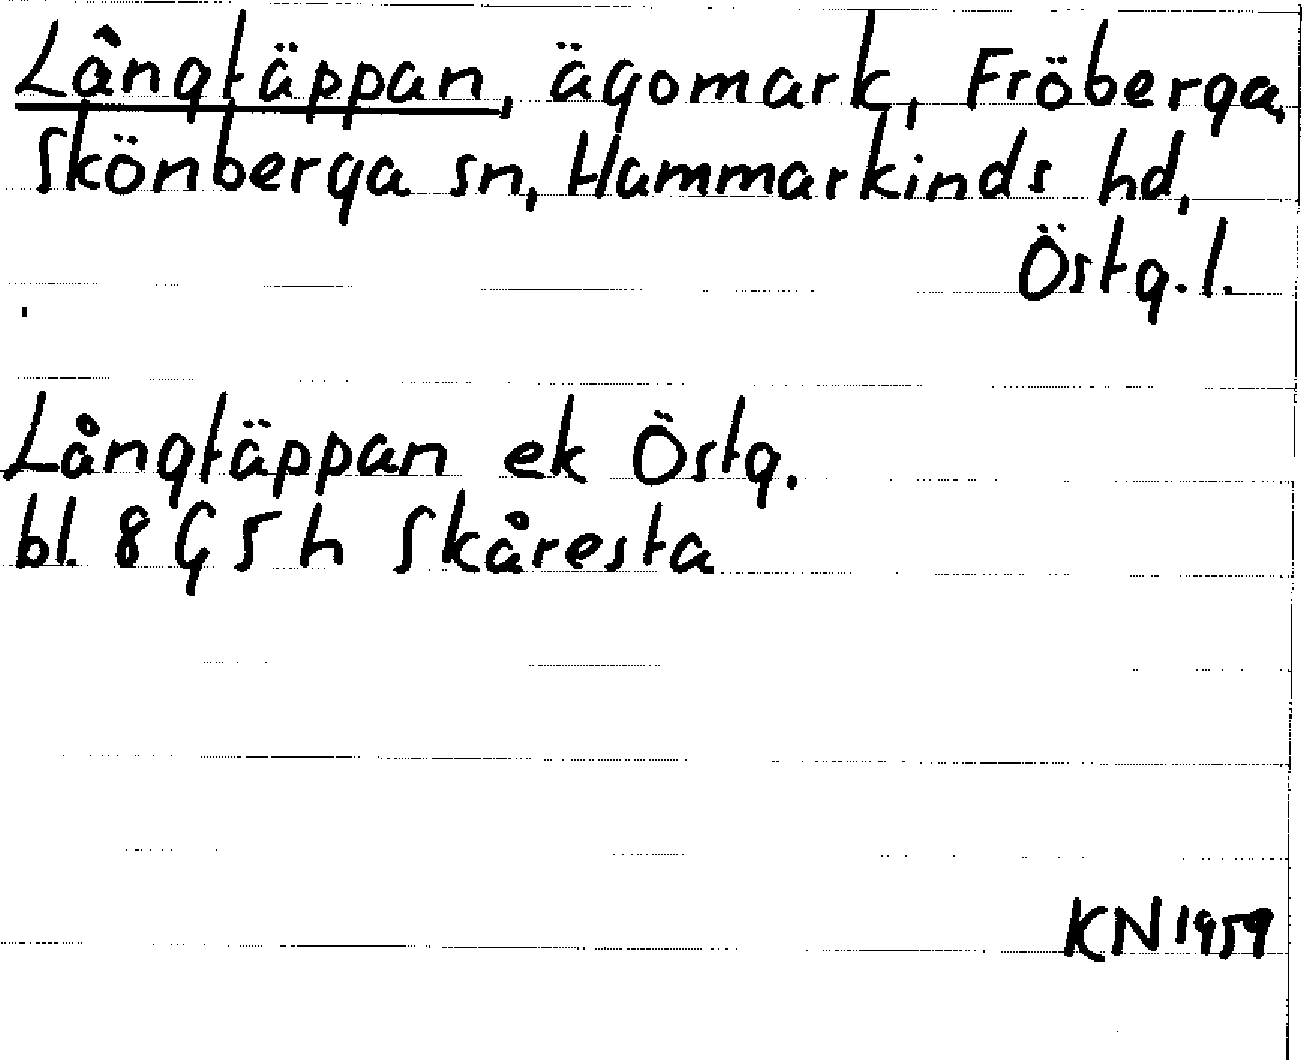 Långtäppan, ägomark, Fröberga,
Skönberga sn, Hammarkinds hd,
Östg. l.
Långtäppan ek Östg.
bl. 8 G 5 h Skåresta
KN 1959